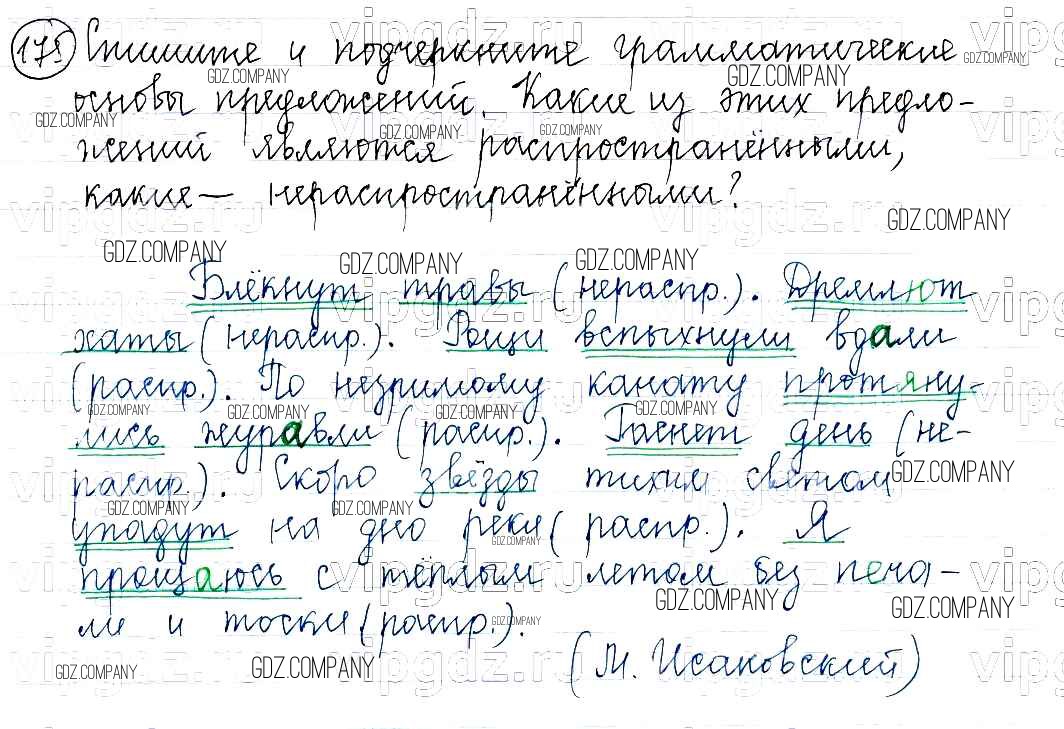 175 Спишите и подчеркните грамматические
основы предложений. Какие из этих предло-
жений являются распространёнными,
какие — нераспространёнными?
Блёкнут травы (нераспр.). Дремлют
хаты (нераспр.). Рощи вспыхнули вдали
(распр.). По незримому канату протяну-
лись журавли (распр.). Гаснет день (не-
распр.). Скоро звёзды тихим светом
упадут на дно реки (распр.). Я
прощаюсь с тёплым летом без печа-
ли и тоски (распр.).
(М. Исаковский)